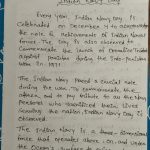 Indian Navy Day
Every year Indian Navy Day is
celebrated on December 4 to recognise
the role & achievements of Indian Naval
force. The Day is also observed to
commemorate the launch of Operation Trident
against Pakistan during the Indo-Pakistan
war in 1971.
The Indian Navy Played a crucial role
during the war. To commemorate the
and to pay tribute to all the Navy
personnel who sacrificed their lives
the Indian Navy Day is
observed.
The Indian Navy is a three-dimensional
force that operates above, on and under
the Ocean's surface to